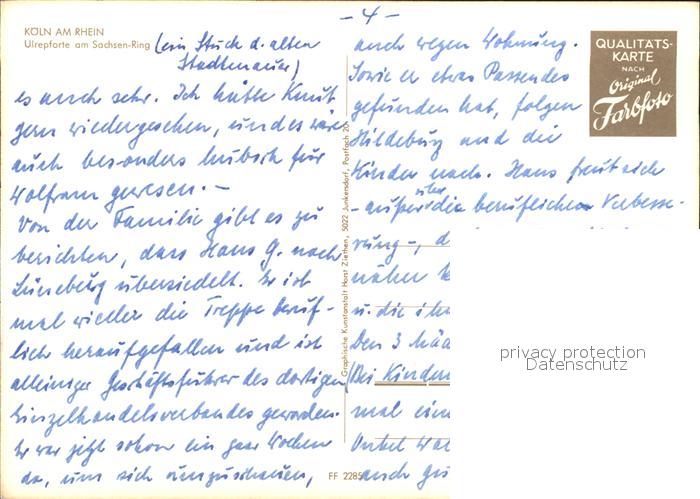 - 4 -
KÖLN AM RHEIN
Ülrepforte am Sachsen-Ring
(ein Stück d. alten
Stadtmauer)
es auch sehr. Ich hätte Knut
gern wiedergesehen, und es wäre
auch besonders hübsch für
Wolfram gewesen. -
Von der Familie gibt es zu
berichten, dass Hans G. nach
Lüneburg übersiedelt. Er ist
mal wieder die Treppe beruf-
lich heraufgefallen und ist
alleiniger Geschäftsführer des dortigen
Einzelhandelsverbandes geworden.
Er war jetzt schon ein paar Wochen
da, um sich umzuschauen,
FF 2285
Graphische Kunstanstalt Horst Ziethen, 5022 Junkersdorf, Postfach 20
auch wegen Wohnung.
Sowie er etwas Passendes
gefunden hat, folgen
Hildeburg und die
Kinder nach. Hans freut sich
- außer über die beruflichen Verbesse-
rung -, d
näher
u. die ihn
Den 3 Mäd
(Bei Kinder
mal ein
Onkel
auch
QUALITÄTS-
KARTE
NACH
Original
Farbfoto
privacy protection
Datenschutz